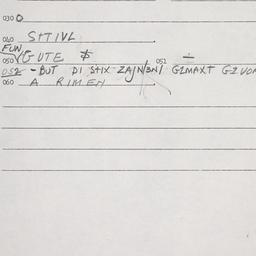 030 O
040 STIVL
FUN
050 GUTE $
052 - BUT DI STIX ZAJN/3N/ 051 GIMAXT GIVO
060 A RIMEN